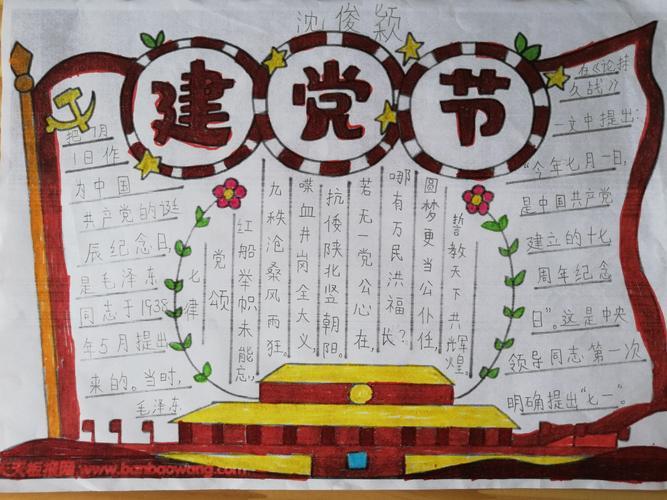 沈俊颖
建党节
把7月
1日作
为中国
共产党的诞
辰纪念日,
是毛泽东
同志于1938
年5月提出
来的。当时,
毛泽东
七律
党颂
红船举帜未能忘,
九秩沧桑风雨狂。
喋血井岗全大义,
抗倭陕北竖朝阳。
若无一党公心在,
哪有万民洪福长?
圆梦更当公仆任,
誓教天下共辉煌。
在《论持
久战》
一文中提出:
“今年七月一日,
是中国共产党
建立的十七
周年纪念
日”。这是中央
领导同志第一次
明确提出“七一”。
www.banbaowang.com